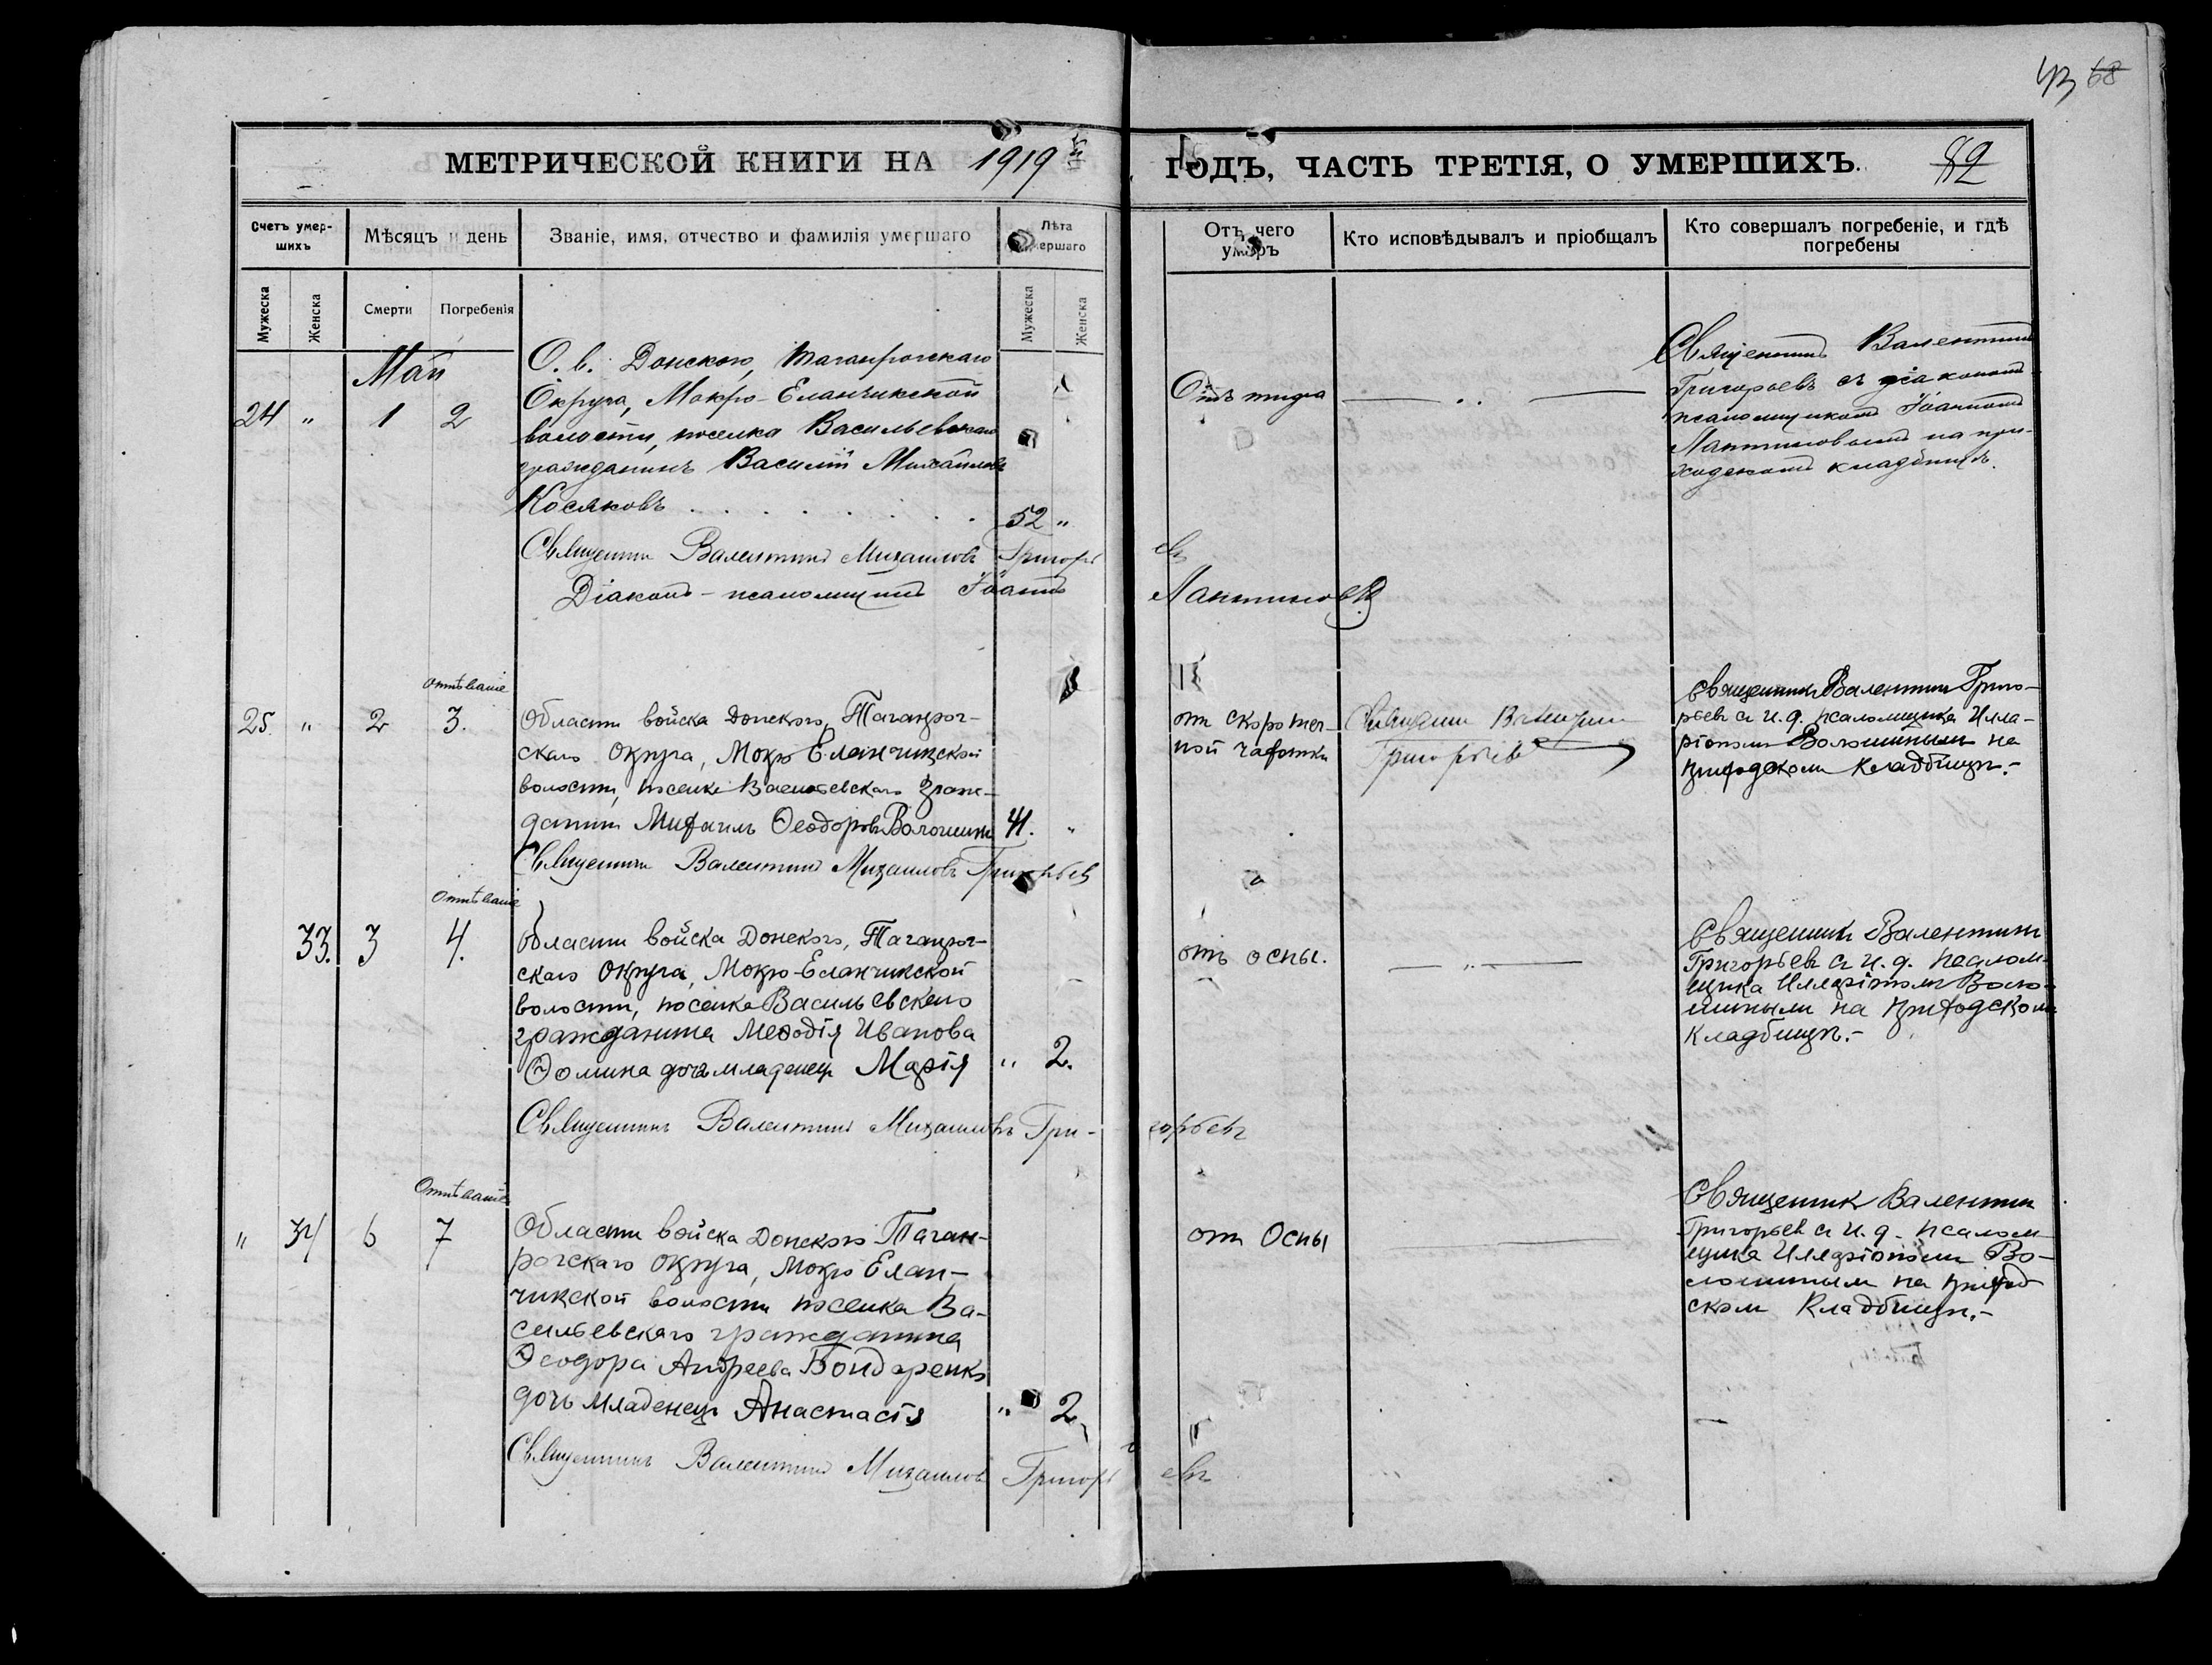 43 68
МЕТРИЧЕСКОЙ КНИГИ НА 1919 й
ГОДЪ, ЧАСТЬ ТРЕТІЯ, О УМЕРШИХЪ.
82
Счетъ умер-
шихъ
Мѣсяцъ и день
Званіе, имя, отчество и фамилія умершаго
Лѣта
умершаго
Отъ чего
умеръ
Кто исповѣдывалъ и пріобщалъ
Кто совершалъ погребеніе, и гдѣ
погребены
Мужеска
Женска
Смерти
Погребенія
Мужеска
Женска
Май
24 " 1 2
О. в. Донского, Таганрогскаго
Округа, Мокро-Еланчикской
волости, поселка Васильевскаго
гражданинъ Василій Михайловъ
Косяковъ
52 "
Отъ тифа
Священникъ Валентинъ
Григорьевъ съ діакономъ-
псаломщикомъ Іоанномъ
на при-
ходскомъ кладбищѣ.
Священникъ Валентинъ Михаиловъ Григорьевъ
Діаконъ-псаломщикъ Іоаннъ
отпѣваніе
25 " 2 3.
Области войска Донского, Таганрог-
скаго Округа, Мокро Еланчикской
волости, поселка Васильевскаго граж-
данин Михаилъ Ѳеодоровъ Волошинъ 41. "
от скоротеч-
ной чахотки
Священник Валентин
Григорьевъ
Священникъ Валентин Григо-
рьевъ съ и. д. псаломщика Илла-
ріоном Волошиным на
приходском кладбищѣ.-
Священникъ Валентинъ Михаиловъ Григорьевъ
Отпѣваніе
33. 3 4.
Области войска Донского, Таганрог-
скаго Округа, Мокро-Еланчикской
волости, поселка Васильевскаго
гражданина Меѳодія Иванова
Ѳомина дочь младенец Марія " 2.
отъ оспы.
Священникъ Валентинъ
Григорьевъ съ и. д. псалом-
щика Илларіоном Воло-
шиным на приходском
кладбищѣ.-
Священникъ Валентинъ Михаиловъ Григорьевъ
Отпѣваніе
" 34 6 7
Области войска Донского Таган-
рогскаго Округа, Мокро Елан-
чикской волости поселка Ва-
сильевскаго гражданина
Ѳеодора Андреева Бондаренко
дочь младенец Анастасія " 2
от Оспы
Священник Валентин
Григорьев съ и. д. псалом-
щика Илларіоном Во-
лошиным на приход-
ском кладбищѣ.-
Священникъ Валентинъ Михаиловъ Григорьевъ